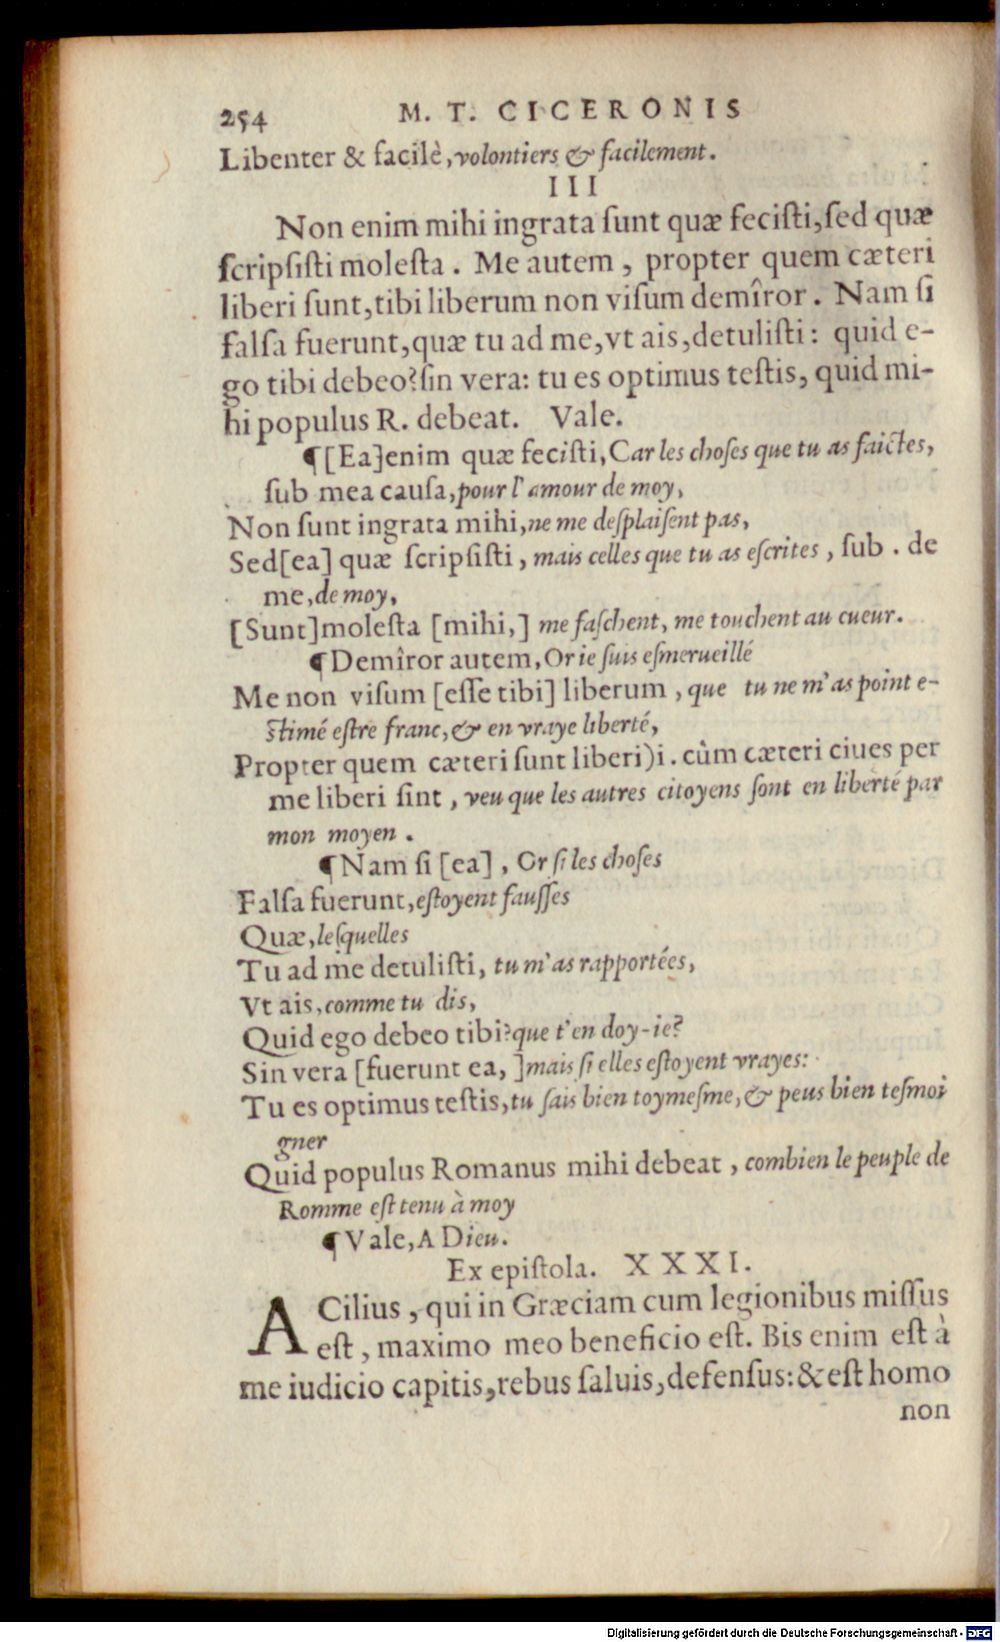 254 M. T. CICERONIS
Libenter & facilè, volontiers & facilement.
III
Non enim mihi ingrata ſunt quæ feciſti, ſed quæ
ſcripſiſti moleſta. Me autem, propter quem cæteri
liberi ſunt, tibi liberum non viſum demîror. Nam ſi
falſa fuerunt, quæ tu ad me, vt ais, detuliſti: quid e-
go tibi debeo? ſin vera: tu es optimus teſtis, quid mi-
hi populus R. debeat. Vale.
¶[Ea]enim quæ feciſti, Car les choſes que tu as faictes,
ſub mea cauſa, pour l'amour de moy,
Non ſunt ingrata mihi, ne me deſplaiſent pas,
Sed[ea] quæ ſcripſiſti, mais celles que tu as eſcrites, ſub. de
me, de moy,
[Sunt]moleſta [mihi,] me faſchent, me touchent au cueur.
¶Demîror autem, Or ie ſuis eſmerueillé
Me non viſum [eſſe tibi] liberum, que tu ne m'as point e-
ſtimé eſtre franc, & en vraye liberté,
Propter quem cæteri ſunt liberi)i. cùm cæteri ciues per
me liberi ſint, veu que les autres citoyens ſont en liberté par
mon moyen.
¶Nam ſi [ea], Or ſi les choſes
Falſa fuerunt, eſtoyent fauſſes
Quæ, leſquelles
Tu ad me detuliſti, tu m'as rapportées,
Vt ais, comme tu dis,
Quid ego debeo tibi? que t'en doy-ie?
Sin vera [fuerunt ea, ]mais ſi elles eſtoyent vrayes:
Tu es optimus teſtis, tu ſais bien toymeſme, & peus bien teſmoi
gner
Quid populus Romanus mihi debeat, combien le peuple de
Romme eſt tenu à moy
¶Vale, A Dieu.
Ex epiſtola. XXXI.
ACilius, qui in Græciam cum legionibus miſſus
eſt, maximo meo beneficio eſt. Bis enim eſt à
me iudicio capitis, rebus ſaluis, defenſus: & eſt homo
non
Digitalisierung gefördert durch die Deutsche Forschungsgemeinschaft - DFG